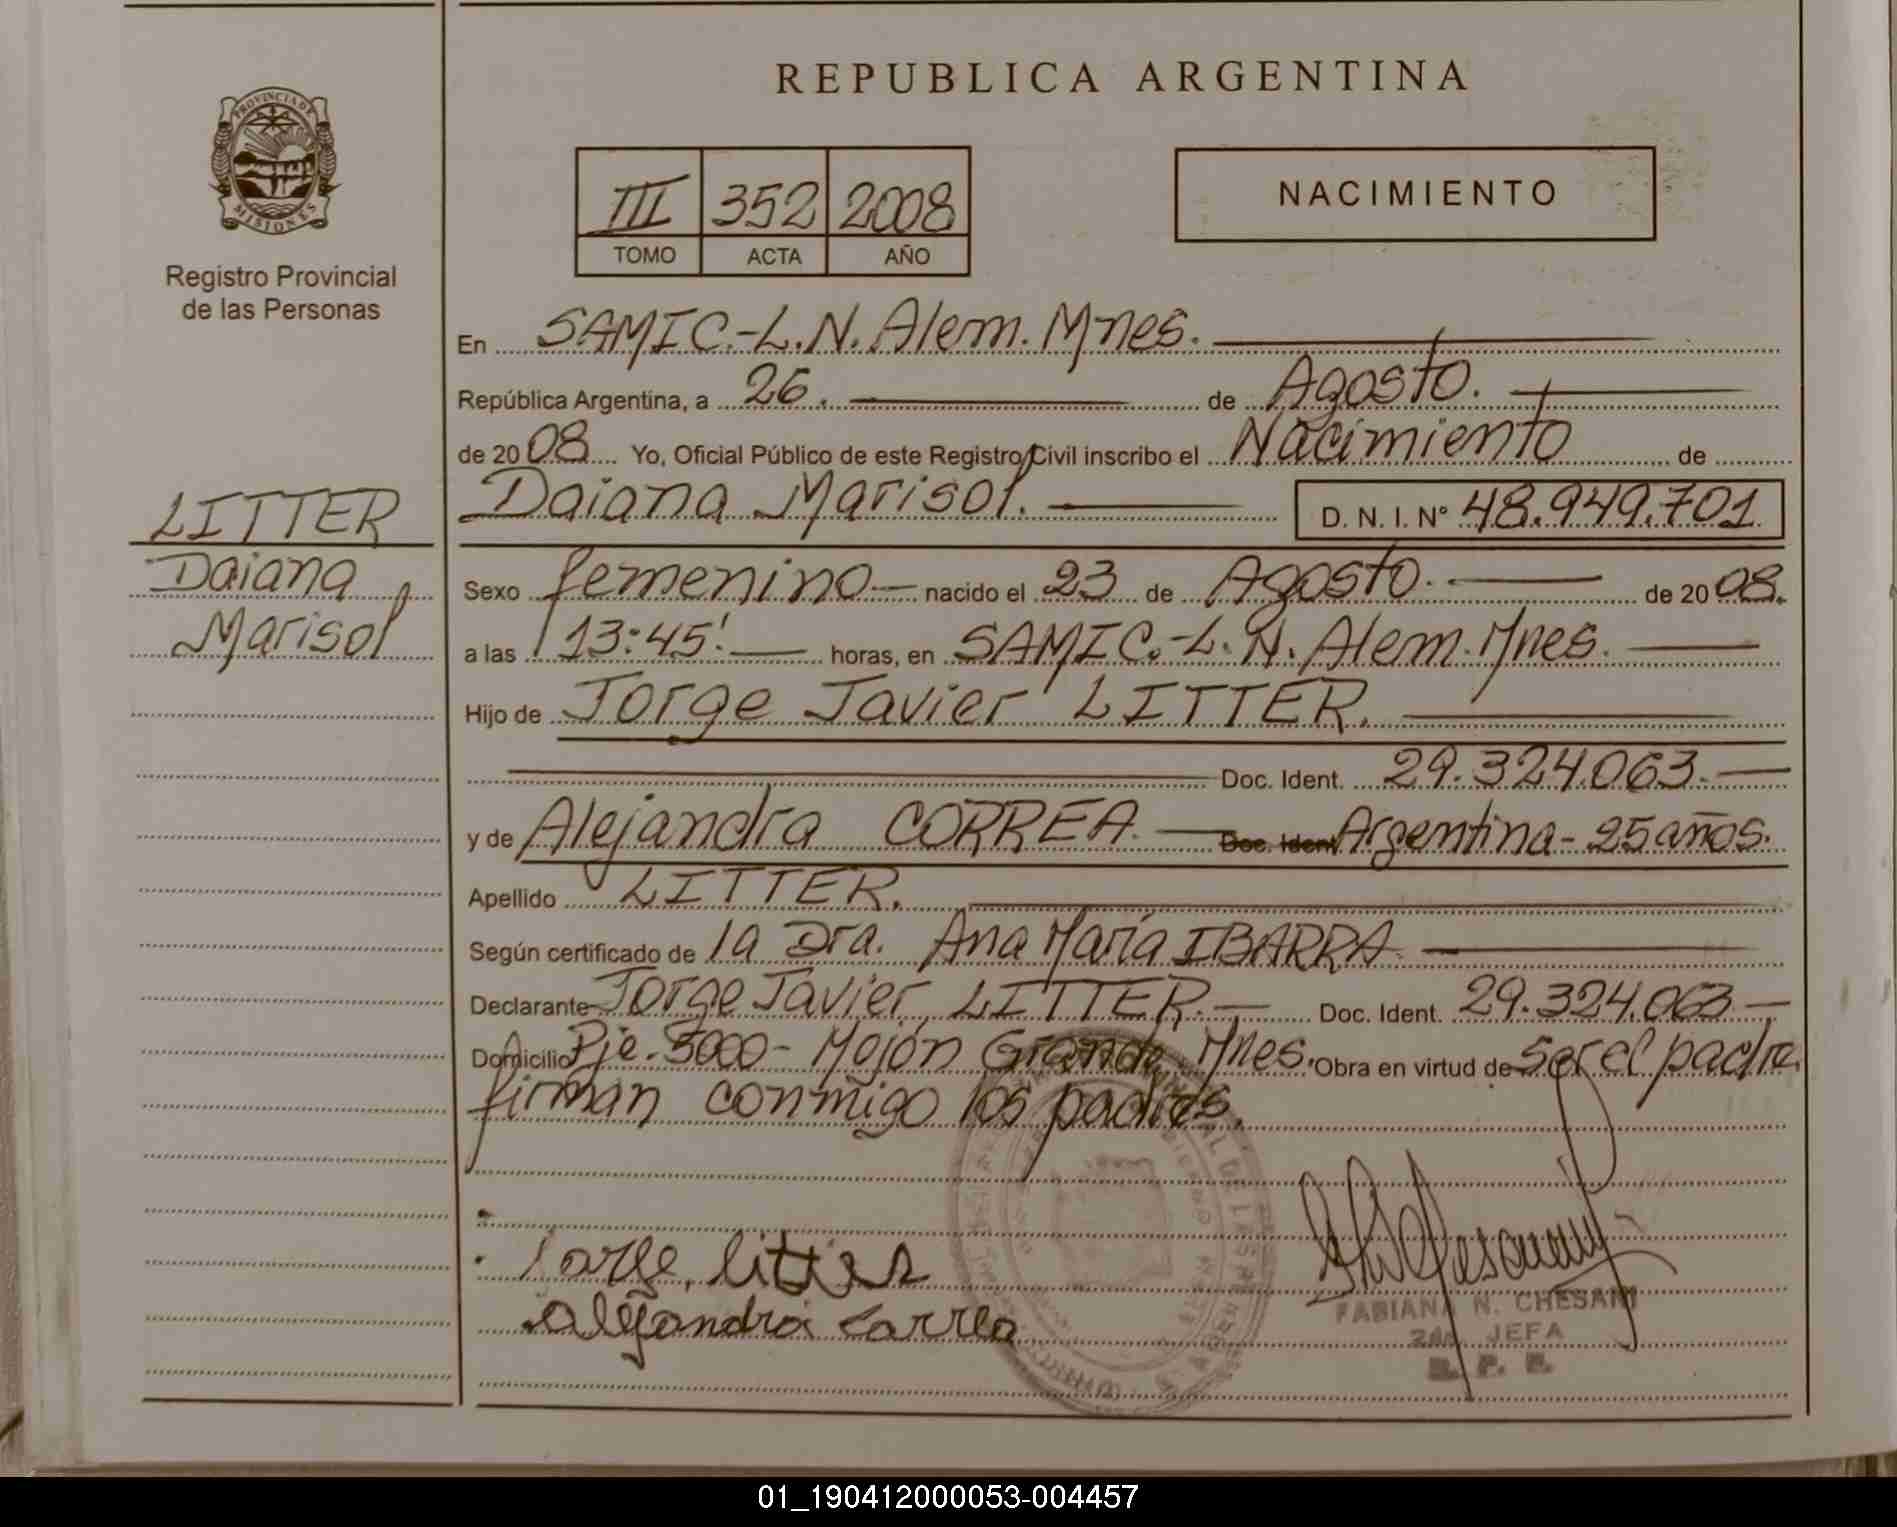 REPUBLICA ARGENTINA
PROVINCIA DE
MISIONES
Registro Provincial
de las Personas
III 352 2008
TOMO ACTA AÑO
NACIMIENTO
En SAMIC.-L.N. Alem. Mnes.
República Argentina, a 26. de Agosto.
de 2008 Yo, Oficial Público de este Registro Civil inscribo el Nacimiento de
Daiana Marisol. D. N. I. N° 48.949.701
LITTER
Daiana
Marisol
Sexo femenino nacido el 23 de Agosto. de 2008.
a las 13:45' horas, en SAMIC.-L.N. Alem. Mnes.
Hijo de Jorge Javier LITTER.
Doc. Ident. 29.324.063.
y de Alejandra CORREA. Doc. Ident Argentina - 25 años.
Apellido LITTER.
Según certificado de la Dra. Ana María IBARRA
Declarante Jorge Javier LITTER. Doc. Ident. 29.324.063
Domicilio Pje. 5000 - Mojón Grande, Mnes. Obra en virtud de ser el padre.
firman conmigo los padres.
Jorge, litter
alejandra correa
FABIANA N. CHESANI
2da. JEFA
R. P. P.
01_190412000053-004457